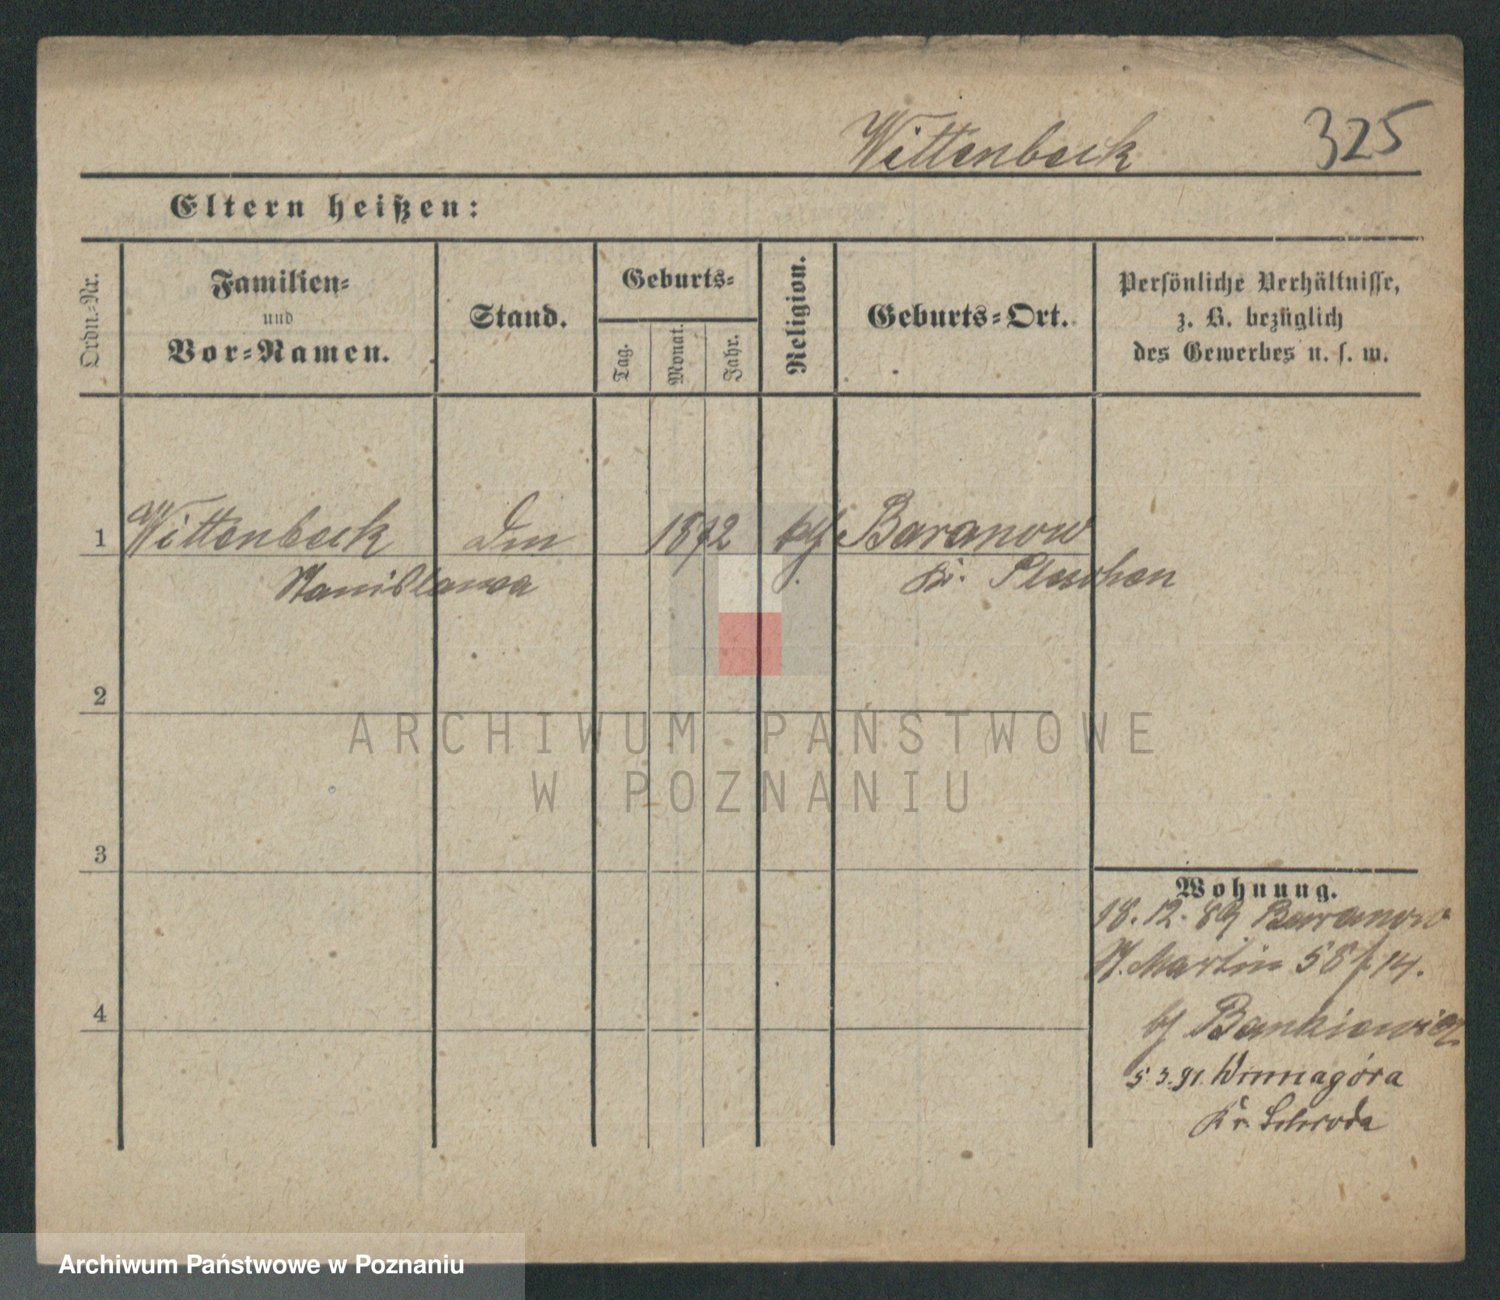 Wittenbeck 325
Eltern heißen:
Ordn.-Nr.
Familien-
und
Vor-Namen.
Stand.
Geburts-
Tag.
Monat.
Jahr.
Religion.
Geburts-Ort.
Persönliche Verhältnisse,
z. B. bezüglich
des Gewerbes u. s. w.
1 Wittenbeck 1872 Baranow
Stanislawa Kr. Pleschen
2
3
4
Wohnung.
18. 12. 89 Baranow
St. Martin 58
Bankiewicz
5 3. 91. Winnagóra
Kr Schroda
ARCHIWUM PAŃSTWOWE
W POZNANIU
Archiwum Państwowe w Poznaniu